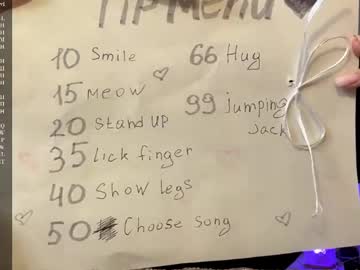 TIP Menu
10 Smile
15 Meow
20 Stand UP
35 Lick finger
40 Show legs
50 Choose song
66 Hug
99 jumping
Jack